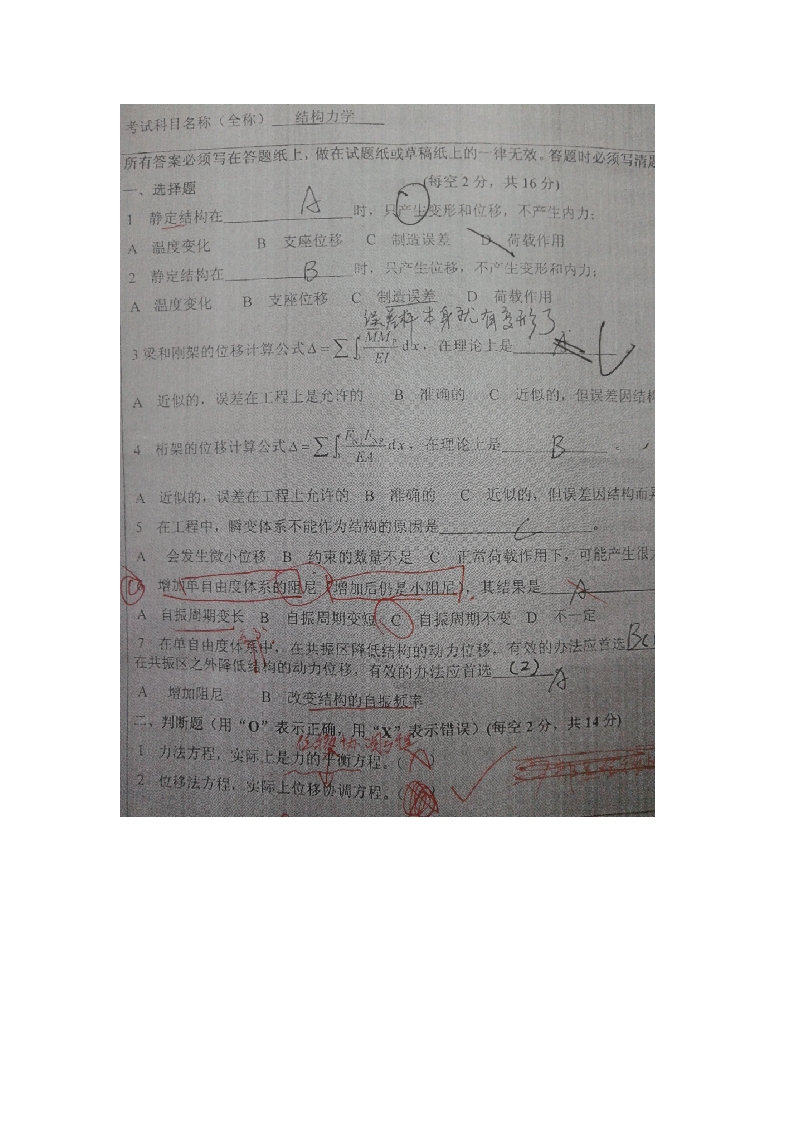 考试科目名称（全称） 结构力学
所有答案必须写在答题纸上，做在试题纸或草稿纸上的一律无效。答题时必须写清题
一、选择题 (每空2分，共16分)
1 静定结构在 A 时，只产生变形和位移，不产生内力；
A 温度变化 B 支座位移 C 制造误差 D 荷载作用
2 静定结构在 B 时，只产生位移，不产生变形和内力；
A 温度变化 B 支座位移 C 制造误差 D 荷载作用
本身就有变形了
3 梁和刚架的位移计算公式 Δ=∑∫ MM_P/EI dx，在理论上是 A
A 近似的，误差在工程上是允许的 B 准确的 C 近似的，但误差因结构
4 桁架的位移计算公式 Δ=∑∫ F_N F_NP/EA dx，在理论上是 B 。
A 近似的，误差在工程上允许的 B 准确的 C 近似的，但误差因结构而
5 在工程中，瞬变体系不能作为结构的原因是 C 。
A 会发生微小位移 B 约束的数量不足 C 正常荷载作用下，可能产生很
6 增加单自由度体系的阻尼（增加后仍是小阻尼），其结果是 A
A 自振周期变长 B 自振周期变短 C 自振周期不变 D 不一定
7 在单自由度体系中，在共振区降低结构的动力位移，有效的办法应首选 B(
在共振区之外降低结构的动力位移，有效的办法应首选 (2) A
A 增加阻尼 B 改变结构的自振频率
二、判断题（用“O”表示正确，用“X”表示错误）(每空2分，共14分)
位移协调方程
1 力法方程，实际上是力的平衡方程。（ X ）
2 位移法方程，实际上位移协调方程。（ ）